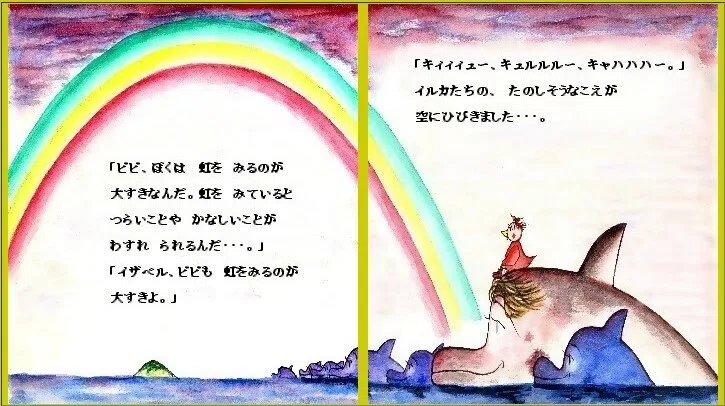 「ビビ、ぼくは　虹を　みるのが
大すきなんだ。虹を　みていると
つらいことや　かなしいことが
わすれ　られるんだ・・・。」
「イザベル、ビビも　虹をみるのが
大すきよ。」
「キィィィュー、キュルルルー、キャハハハー。」
イルカたちの、　たのしそうなこえが
空にひびきました・・・。